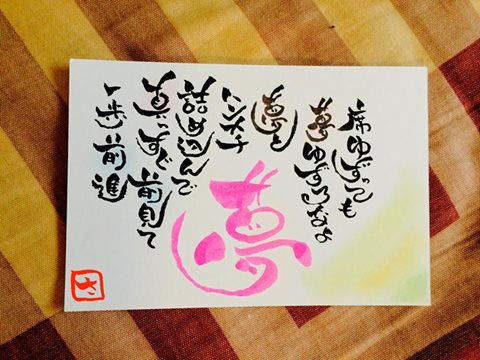 席ゆずっても
夢ゆずるなよ
夢と
ハンカチ
詰め込んで
真っすぐ前見て
一歩前進
夢
さ